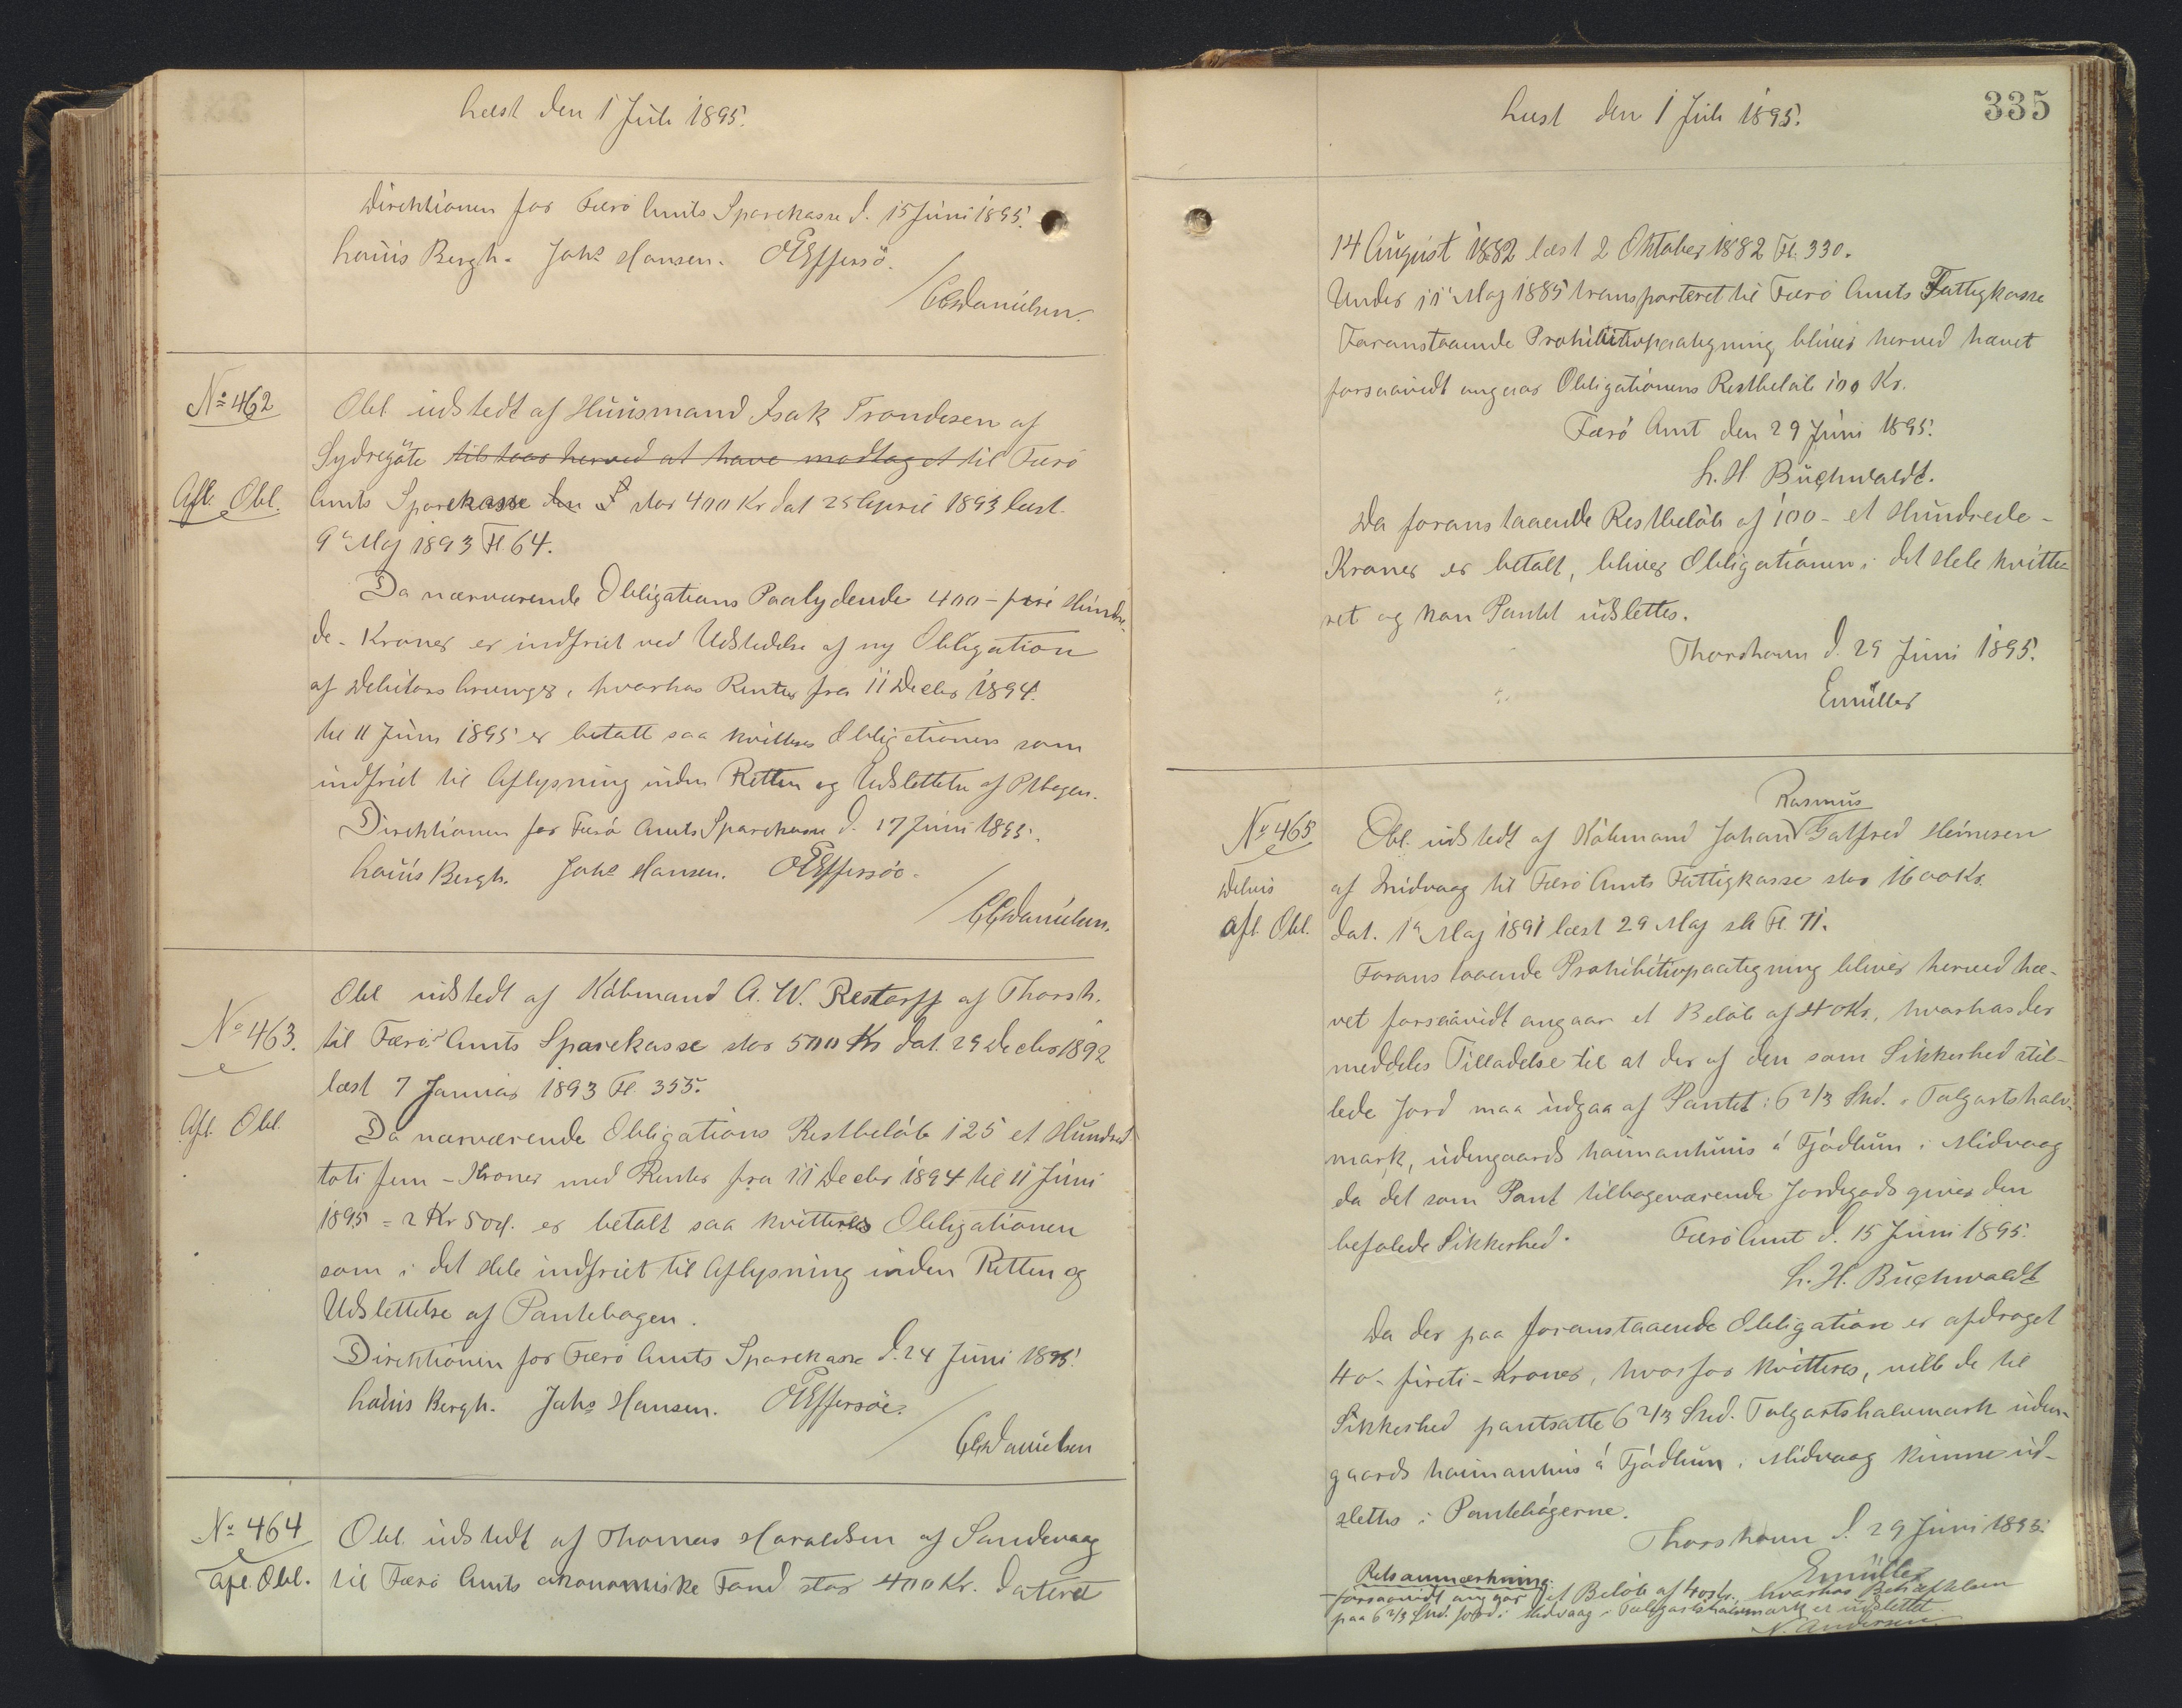 Læst den 1 Juli 1895.
Direktionen for Færö Amts Sparekasse d. 15 Juni 1895.
Louis Bergh. Johs Hansen. OEffersöe.
/CCDanielsen.
No 462
Afl. Obl.
Obl. udstedt af Huusmand Isak Trondesen af
Sydregöte tilstaar herved at have modtaget til Færö
Amts Sparekasse den stor 400 Kr dat 25 April 1893 læst
9 Maj 1893 Fl 64.
Da nærværende Obligations Paalydende 400 - fire Hundre-
de - Kroner er indfriet ved Udstedelse af ny Obligation
af Debitors Arvinger, hvorhos Renter fra 11 Decbr 1894
til 11 Juni 1895 er betalt saa kvitteres Obligationen som
indfriet til Aflysning inden Retten og Udslettelse af Ptbogen.
Direktionen for Færö Amts Sparekasse d. 17 Juni 1895.
Louis Bergh. Johs Hansen. OEffersöe.
/CCDanielsen.
No 463.
Afl. Obl.
Obl udstedt af Köbmand A. W. Restorff af Thorsh.
til Færö Amts Sparekasse stor 500 Kr dat. 29 Decbr 1892
læst 7 Januar 1893 Fl. 355.
Da nærværende Obligations Restbelöb 125 et Hundred
toti fem - Kroner med Renter fra 11 Decbr 1894 til 11 Juni
1895 = 2 Kr 50 Ø. er betalt saa kvitteres Obligationen
som i det Hele indfriet til Aflysning inden Retten og
Udslettelse af Pantebogen.
Direktionen for Færö Amts Sparekasse d. 24 Juni 1895.
Louis Bergh. Johs Hansen. OEffersöe.
/CCDanielsen
No 464
Afl. Obl.
Obl. udstedt af Thomas Haraldsen af Sandevaag
til Færö Amts økonomiske Fond stor 400 Kr. dateret
335
Læst den 1 Juli 1895.
14 August 1882 læst 2 Oktober 1882 Fl. 330.
Under 11 Maj 1885 transporteret til Færö Amts Fattigkasse
Foranstaaende Prohibitivpaategning bliver herved hævet
forsaavidt angaar Obligationens Restbelöb 100 Kr.
Færö Amt den 29 Juni 1895.
L. H Buchwaldt.
Da foranstaaende Restbelöb af 100 - et Hundrede -
Kroner er betalt, bliver Obligationen i det Hele kvitte-
ret og kan Pantet udslettes.
Thorshavn d. 29 Juni 1895.
Emüller
No 465
Delvis
afl. Obl.
Rasmus
Obl. udstedt af Köbmand Johan Gatfred Heinesen
af Midvaag til Færö Amts Fattigkasse stor 1600 Kr.
dat. 1 Maj 1891 læst 29 Maj sk Fl. 71.
Foranstaaende Prohibitivpaategning bliver herved hæ-
vet forsaavidt angaar et Belöb af 40 Kr., hvorhos der
meddeles Tilladelse til at der af den som Sikkerhed stil-
lede Jord maa udgaa af Pantet: 6 2/3 Skd. i Talgartshalv-
mark, udengaards heimanhuus á Fjódlum i Midvaag
da det som Pant tilbageværende Jordegods giver den
befalede Sikkerhed. Færö Amt d. 15 Juni 1895.
L. H. Buchwaldt
Da der paa foranstaaende Obligation er afdraget
40 - fireti - Kroner, hvorfor kvitteres, ville de til
Sikkerhed pantsatte 6 2/3 Skd. Talgartshalvmark uden-
gaards heimanhus á Fjódlum i Midvaag kunne ud-
slettes i Pantebögerne.
Thorshavn d. 29 Juni 1895.
Emüller
Retsanmærkning:
forsaavidt angaar et Belöb af 40 Kr. hvorhos Behæftelsen
paa 6 2/3 Skd. Jord i Midvaag i Talgartshalvmark er udslettet
N. Andersen